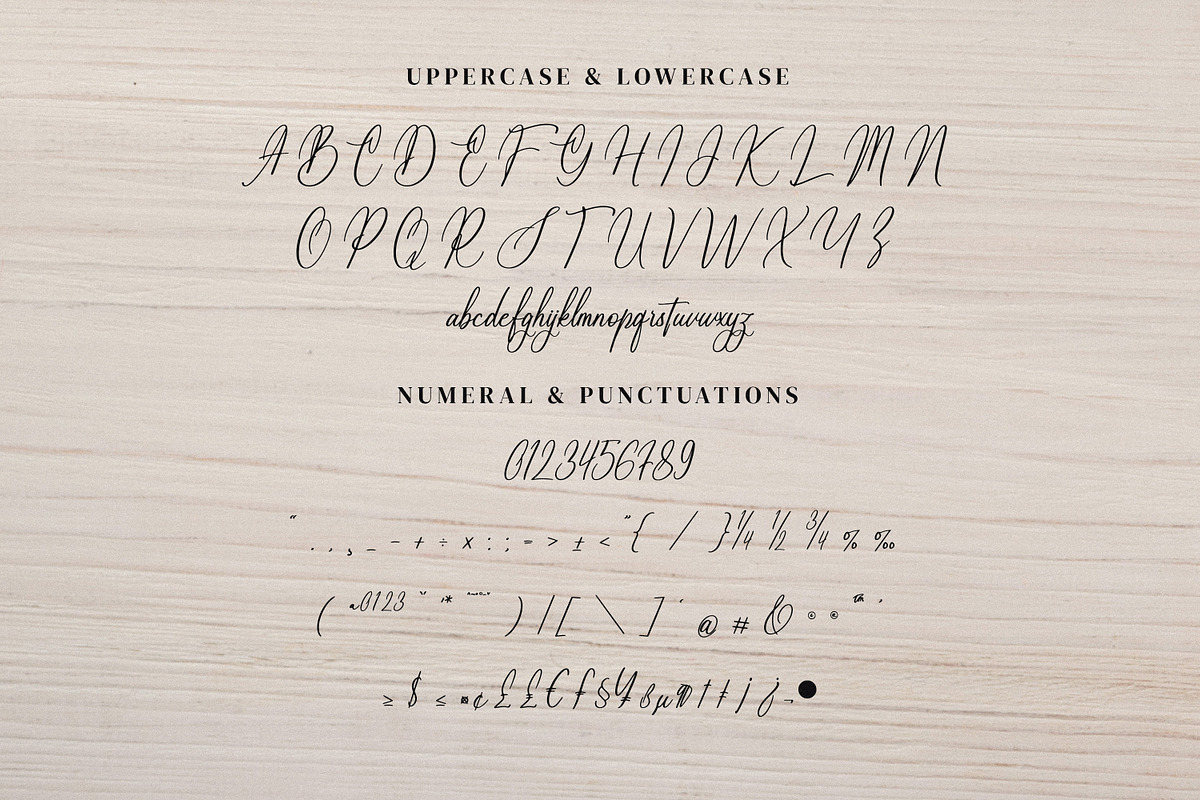 UPPERCASE & LOWERCASE
A B C D E F G H I J K L M N
O P Q R S T U V W X Y Z
abcdefghijklmnopqrstuvwxyz
NUMERAL & PUNCTUATIONS
0123456789
“ . , ¸ _ - + ÷ x : ; = > ± < ” { / } ¼ ½ ¾ % ‰
( ª 0 1 2 3 * ) | [ \ ] @ # & © ® ™
≥ $ ≤ ¤ ¢ £ € ƒ § ¥ ß µ ¶ † ‡ j ¬ ●